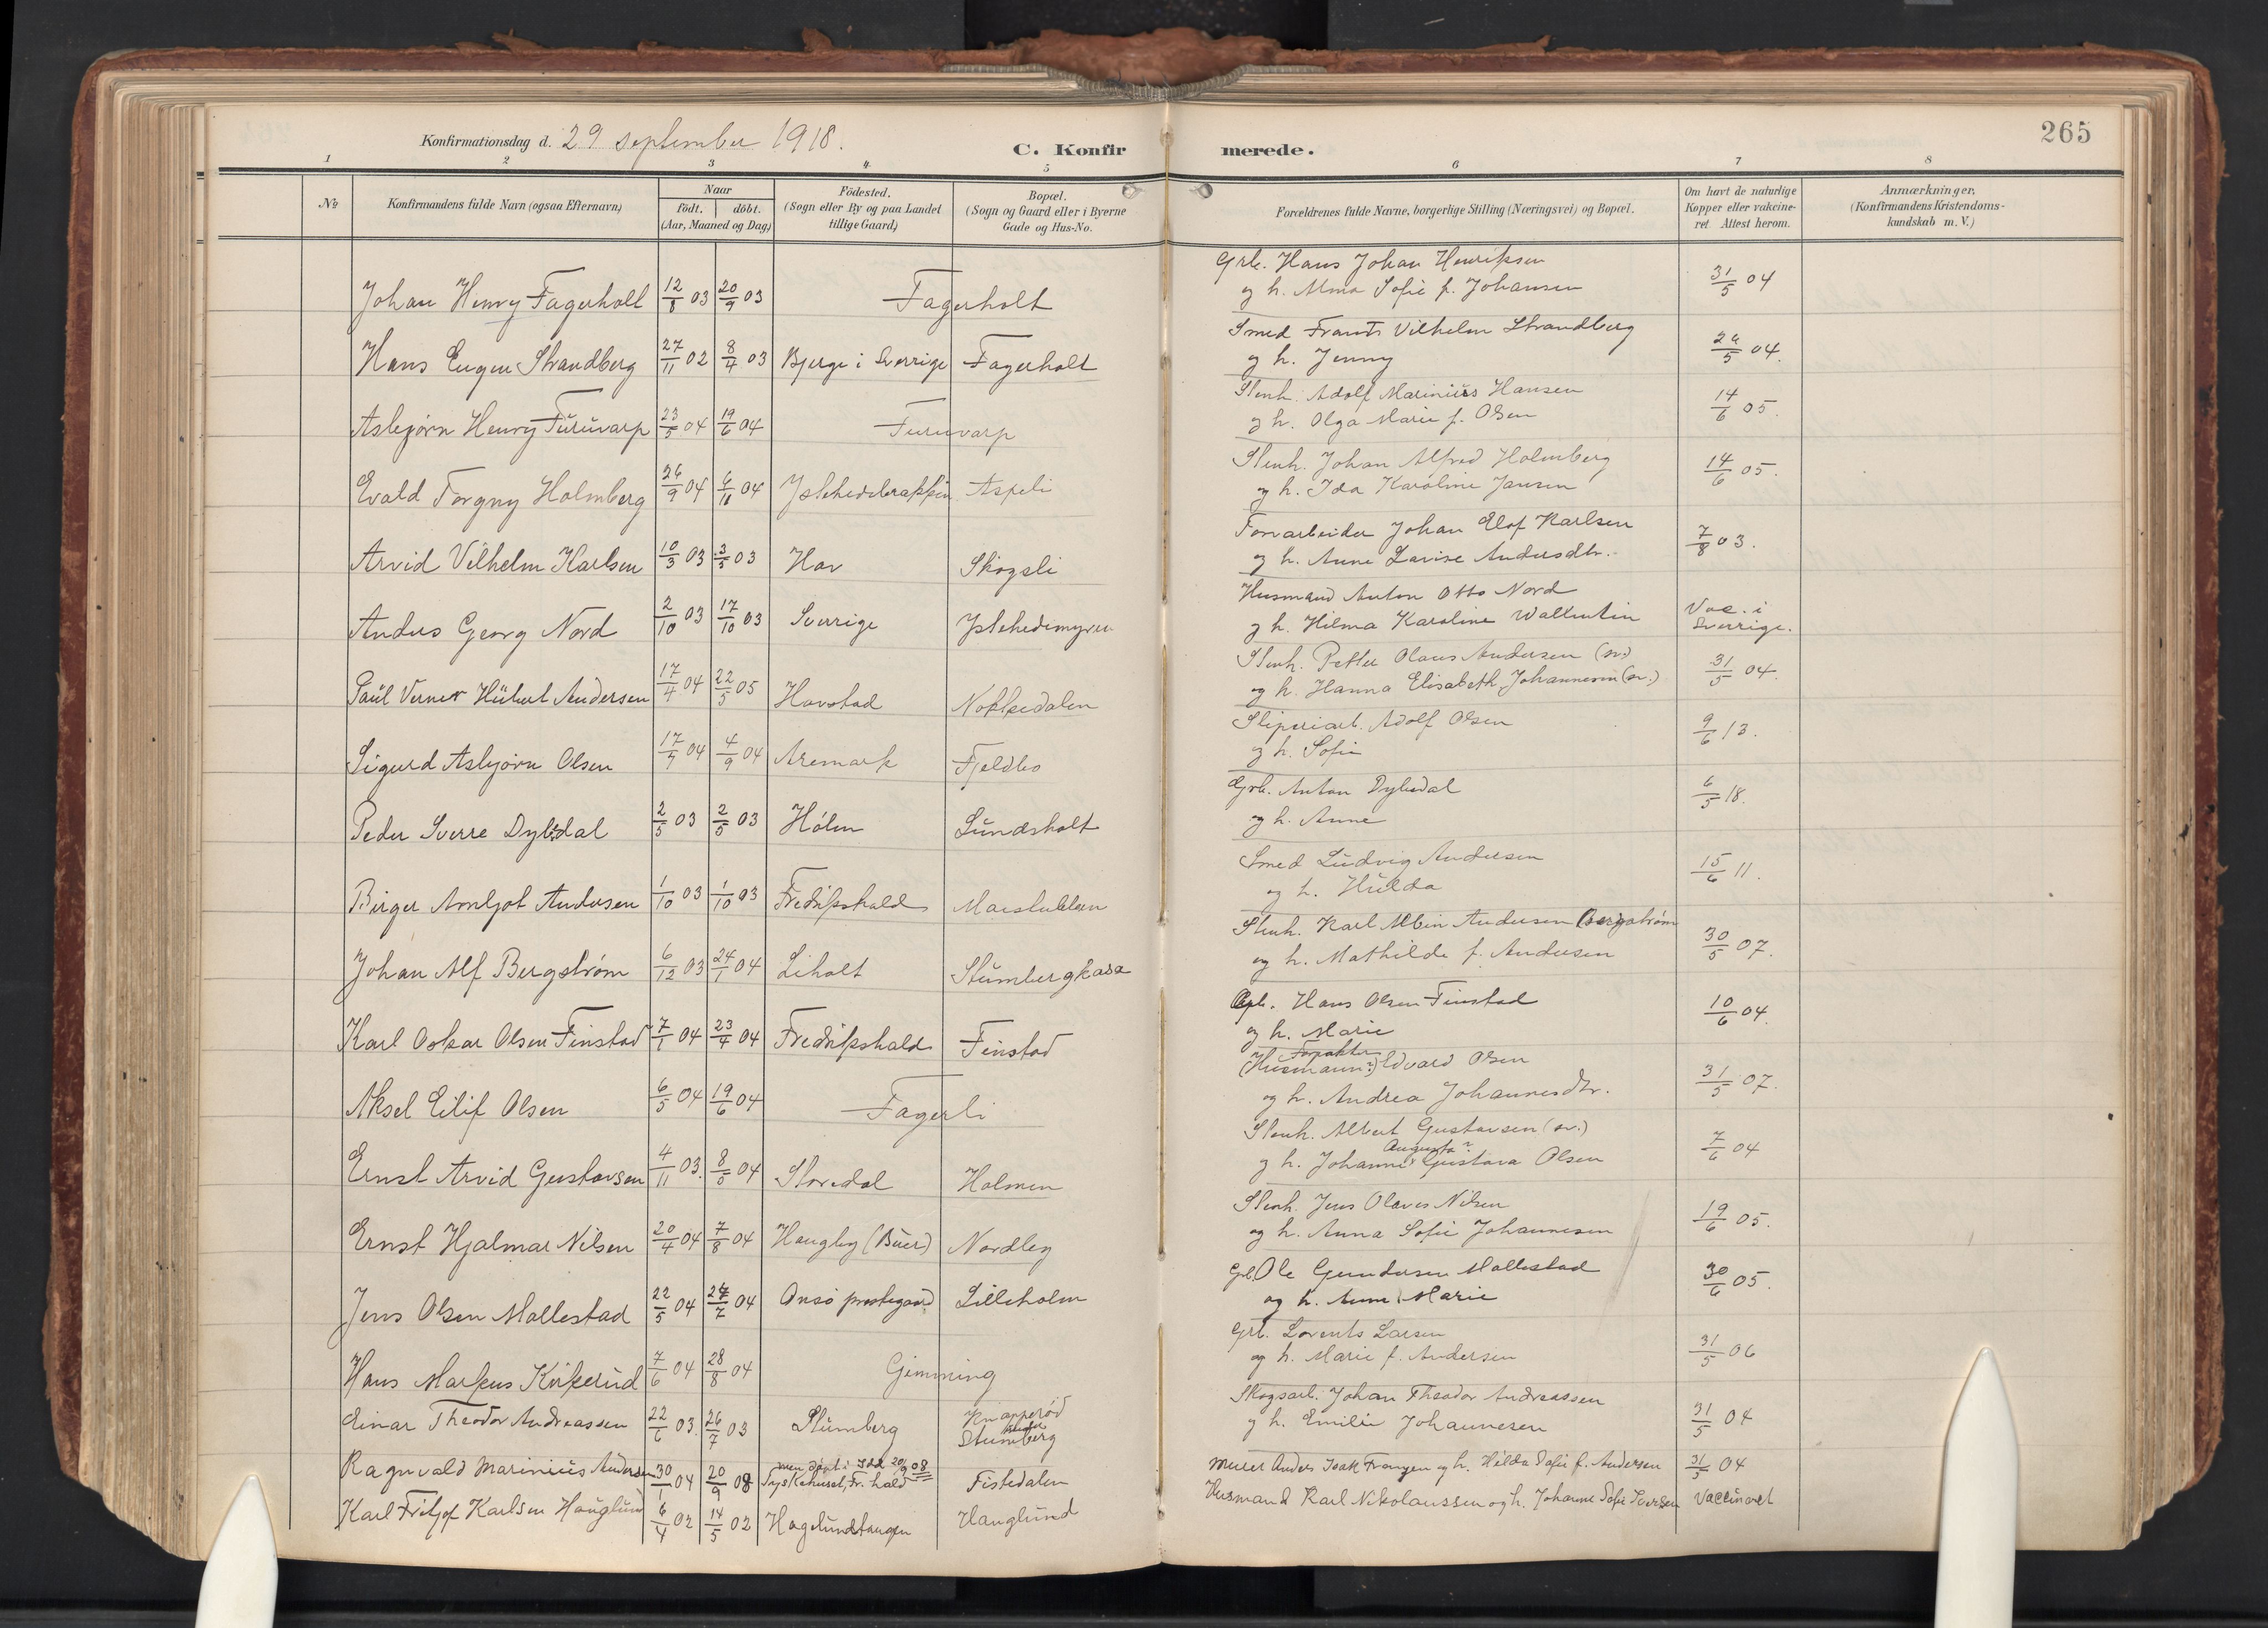 265
Konfirmationsdag d. 29 september 1918.
C. Konfirmerede.
1 2 3 4 5 6 7 8
No
Konfirmandens fulde Navn (ogsaa Efternavn)
Naar
født. døbt.
(Aar, Maaned og Dag)
Födested.
(Sogn eller By og paa Landet
tillige Gaard)
Bopæl.
(Sogn og Gaard eller i Byerne
Gade og Hus-No.
Forældrenes fulde Navne, borgerlige Stilling (Næringsvei) og Bopæl.
Om havt de naturlige
Kopper eller vakcine-
ret Attest herom.
Anmærkninger.
(Konfirmandens Kristendoms-
kundskab m. V.)
Grb. Hans Johan Henriksen
Johan Henry Fagerholt 12/8 03 20/9 03 Fagerholt og h. Alma Sofie f. Johansen 31/5 04
Smed Frants Vilhelm Strandberg
Hans Eugen Strandberg 27/11 02 8/4 03 Bjerge i Sverrige Fagerholt og h. Jenny /5 04.
Stenh. Adolf Marinius Hansen
Asbjørn Henry Furuvarp 23/5 04 19/6 04 Furuvarp og h. Olga Marie f. Olsen 14/6 05.
Stenh. Johan Alfred Holmberg
Evald Torgny Holmberg 26/9 04 6/11 04 Aspeli og h. Ida Karoline Jansen 14/6 05.
Torvarbeider Johan Elof Karlsen
Arvid Vilhelm Karlsen 10/3 03 3/5 03 Hov Skogsli og h. Anne Lavise Andersdtr. 7/8 03.
Husmand Anton Otto Nord
Anders Georg Nord 2/10 03 17/10 03 Sverrige Ystehedemyren og h. Hilma Karoline Wallentin Vac. i
Sverrige.
Stenh. Petter Olaus Andersen (sv.)
Paul Verner Hubert Andersen 17/4 04 22/5 05 Hovstad Nokkedalen og h. Hanna Elisabeth Johannesen (sv.) 31/5 04.
Sliperiarb. Adolf Olsen
Sigurd Asbjørn Olsen 17/7 04 4/9 04 Aremark Fjeldbo og h. Sofie 9/6 13.
Grb. Anton Dybedal
Peder Sverre Dybdal 2/5 03 2/5 03 Hølen Lundsholt og h. Anne 6/5 18.
Smed Ludvig Andersen
Birger Arnljot Andersen 1/10 03 1/10 03 Fredrikshald og h. Hulda 15/6 11.
Stenh. Karl Albin Andersen Bergstrøm
Johan Alf Bergstrøm 6/12 03 24/1 04 Liholt Stumbergkasa og h. Mathilde f. Andersen 30/5 07.
Hans Olsen Finstad
Karl Oskar Olsen Finstad 7/1 04 23/4 04 Fredrikshald Finstad og h. Marie 10/6 04.
Forpakter
(Husmann?) Edvard Olsen
Aksel Eilif Olsen 6/5 04 19/6 04 Fagerli og h. Andrea Johannesdtr. 31/5 07.
Stenh. Albert Gustavsen (sv.)
Augusta?
Ernst Arvid Gustavsen 4/11 03. 8/5 04 Storedal Holmen og h. Johanne Gustava Olsen 7/6 04
Stenh. Jens Olaves Nilsen
Ernst Hjalmar Nilsen 20/4 04 7/8 04 Haugby (Buer) Nordby og h. Anna Sofie Johannesen 19/6 05.
Grb. Ole Gundersen Mallestad
Jens Olsen Mallestad 22/5 04 24/7 04 Onsø prestegaard Lilleholm og h. Anne Marie 30/6 05.
Grb. Lorents Larsen
Hans Markus Kirkerud 7/6 04 28/8 04 Gimming og h. Marie f. Andersen 31/5 06
Skogsarb. Johan Theodor Andreassen
Einar Theodor Andreassen 22/6 03. 26/7 03 Stumberg Knapperød
under
Stumberg og h. Emilie Johannesen 31/5 04
men døpt i Idd 20/9 08
Ragnvald Marinius Andersen 30/1 04 20/9 08 Sykehuset, Fr.hald Fistedalen Murer Anders Isak Frangen og h. Hilda Sofie f. Andersen 31/5 04
Karl Fritjof Karlsen Hauglund 6/4 02 14/5 02 Hagelundtangen Hauglund Husmand Karl Nikolaussen og h. Johanne Sofie Iversen Vaccineret